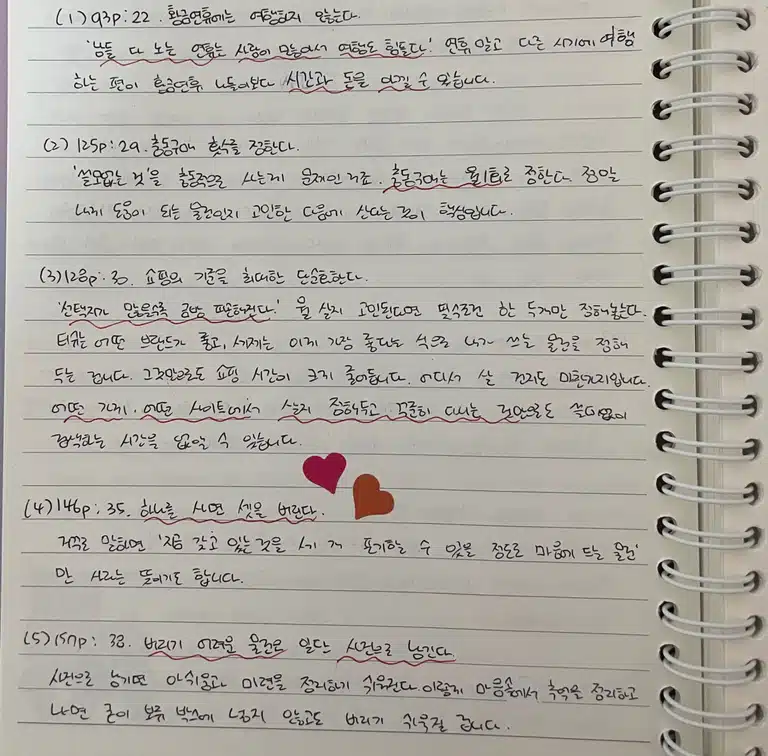 (1) 93p : 22. 황금연휴에는 여행하지 않는다.
'남들 다 노는 연휴는 사람이 많아서 여행도 힘들다.' 연휴 말고 다른 시기에 여행
하는 편이 황금연휴 나들이보다 시간과 돈을 아낄 수 있습니다.
(2) 125p : 29. 충동구매 횟수를 정한다.
'쓸모없는 것'을 충동적으로 사는게 문제인 거죠. 충동구매는 월1회로 정한다. 정말
내게 도움이 되는 물건인지 고민한 다음에 산다는 점이 핵심입니다.
(3) 128p : 30. 쇼핑의 기준을 최대한 단순화한다.
'선택지가 많을수록 금방 피곤해진다.' 뭘 살지 고민된다면 필수조건 한 두개만 정해놓는다.
티슈는 어떤 브랜드가 좋고, 세제는 이게 가장 좋다는 식으로 내가 쓰는 물건을 정해
두는 겁니다. 그것만으로도 쇼핑 시간이 크게 줄어듭니다. 어디서 살 건지도 마찬가지입니다.
어떤 가게, 어떤 사이트에서 살지 정해두고 꾸준히 다니는 것만으로도 쓸데없이
검색하는 시간을 없앨 수 있습니다.
(4) 146p : 35. 하나를 사면 셋을 버린다.
거꾸로 말하면 '지금 갖고 있는 것을 세 개 포기할 수 있을 정도로 마음에 드는 물건'
만 사라는 뜻이기도 합니다.
(5) 157p : 38. 버리기 어려운 물건은 일단 사진으로 남긴다.
사진으로 남기면 아쉬움과 미련을 정리하기 쉬워진다. 이렇게 마음속에서 추억을 정리하고
나면 굳이 보류 박스에 넣지 않고도 버리기 쉬워질 겁니다.